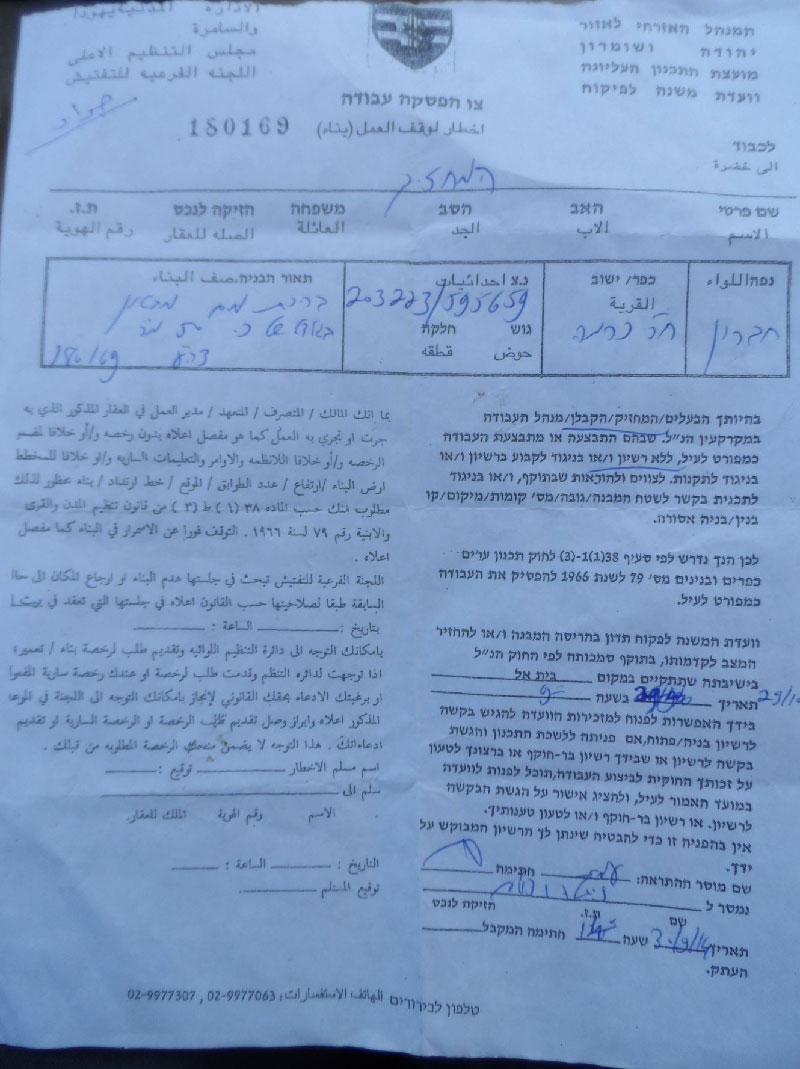 המנהל האזרחי לאזור
יהודה ושומרון
מועצת התכנון העליונה
וועדת משנה לפיקוח
الادارة المدنية يهودا
والسامرة
مجلس التنظيم الاعلى
اللجنه الفرعيه للتفتيش
צו הפסקה עבודה
اخطار لوقف العمل (بناء)
180169
לכבוד
الى حضرة
המחזיק
שם פרטי האב הסב משפחה הזיקה לנכס ת.ז.
الاسم الاب الجد العائلة الصله للعقار رقم الهوية
נפה اللواء כפר/ ישוב נ.צ احداثيات תאור הבניה.صف البناء
القرية
חברון 203223/595659
גוש חלקה
حوض قطعه
180169
בהיותך הבעלים/המחזיק/הקבלן/מנהל העבודה
במקרקעין הנ"ל. שבהם התבצעה או מתבצעת העבודה
כמפורט לעיל, ללא רשיון ו/או בניגוד לקבוע ברשיון ו/או
בניגוד לתקנות. לצווים ולהוראות שבתוקף, ו/או בניגוד
לתכנית בקשר לשטח המבנה/גובה/מס' קומות/מיקום/קו
בנין/בניה אסורה.
לכן הנך נדרש לפי סעיף 38(1)-(3) לחוק תכנון ערים
כפרים ובנינים מס' 79 לשנת 1966 להפסיק את העבודה
כמפורט לעיל.
וועדת המשנה לפקוח תדון בהריסה המבנה ו/או להחזיר
המצב לקדמותו, בתוקף סמכותה לפי החוק הנ"ל
בישיבתה שתתקיים במקום בית אל
תאריך בשעה
בידך האפשרות לפנות למזכירות הוועדה להגיש בקשה
לרשיון בניה/פתוח, אם פניתה ללשכת התכנון והגשת
בקשה לרשיון או שבידך רשיון בר-חוקף או ברצונך לטעון
על זכותך החוקית לביצוע העבודה, תוכל לפנות לוועדה
במועד האמור לעיל, ולהציג אישור על הגשת הבקשה
לרשיון. או רשיון בר-חוקף ו/או לטעון טענותיך.
אין בהפניה זו כדי להבטיח שינתן לך הרשיון המבוקש על
ידך.
שם מוסר ההתראה: חתימה
נמסר ל
שם ת.ז. הזיקה לנכס
תאריך שעה חתימה המקבל
העתק.
بما انك المالك / المتصرف / المتعهد / مدير العمل في العقار المذكور الذي به
جرت او تجري به العمل كما هو مفصل اعلاه بدون رخصه و/أو خلافا
الرخصه و/أو خلافا للانظمه والاوامر والتعليمات الساريه و/او خلافا للمخطط
ارض البناء /ارتفاع / عدد الطوابق / الموقع / خط ارتداد / بناء محظور لذلك
مطلوب منك حسب الماده ٣٨ ( ١ ) ط ( ٣ ) من قانون تنظيم المدن والقرى
والابنية رقم ٧٩ لسنة ١٩٦٦ . التوقف فورا عن الاستمرار في البناء كما مفصل
اعلاه .
اللجنة الفرعية للتفتيش تبحث في جلستها هدم البناء او ارجاع المكان الى
السابقة طبقا لصلاحيتها حسب القانون اعلاه في جلستها التي تعقد في
بتاريخ : الساعة :
بامكانك التوجه الى دائرة التنظيم اللوائيه وتقديم طلب لرخصة بناء / تعميرة
اذا توجهت لدائره التنظم وقدمت طلب لرخصة او عندك رخصة سارية
او برغبتك الادعاء بحقك القانوني لإنجاز بامكانك التوجه الى اللجنة في
المذكور اعلاه وابراز وصل تقديم طلب الرخصة او الرخصة السارية او تقديم
ادعاءاتك . هذا التوجه لا يضمن منحك الرخصة المطلوبه من قبلك .
اسم مسلم الاخطار توقيع :
سلم الى
الاسم رقم الهوية المالك للعقار.
التاريخ : الساعة :
توقيع المستلم
טלפון לבירורים الهاتف الاستفسارات: 02-9977063, 02-9977307